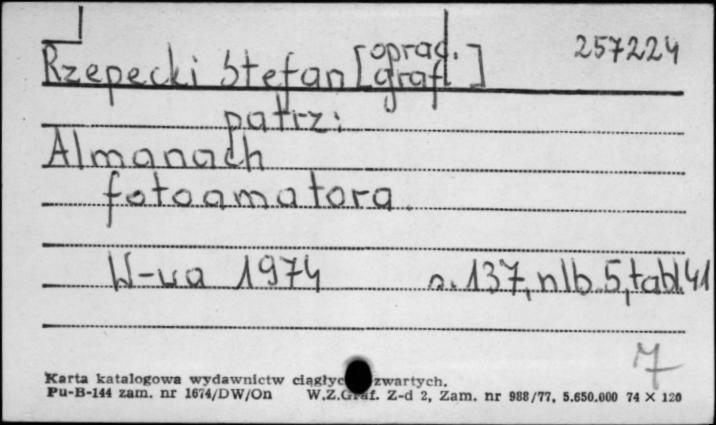 257224
Rzepecki Stefan [oprac. graf.]
patrz:
Almanach
fotoamatora.
W-wa 1974 s. 137, nlb. 5, tabl. 41
7
Karta katalogowa wydawnictw zwartych.
Pu-B-144 zam. nr 1674/DW/On W.Z.Graf. Z-d 2, Zam. nr 988/77, 5.650.000 74 X 120